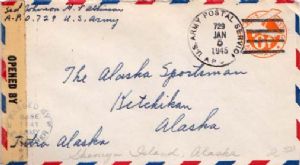 Johnson
A.P.O. 729 U.S. Army
U.S. ARMY POSTAL SERVICE
729
JAN
1945
A.P.O.
6¢
OPENED BY
The Alaska Sportsman
Ketchikan
Alaska
Alaska
Shemya Island, Alaska